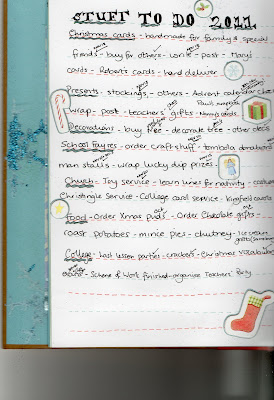 STUFF TO DO 2011
Christmas cards - handmade for family & special
friends - buy for others - write - post - Mary's
cards - Robert's cards - hand deliver
Presents - stockings - others - Advent calendar
wrap - post - teachers' gifts - Nanny's cards
Decorations - buy tree - decorate tree - other decs
School Fayres - order craft stuff - tombola donations
man stalls - wrap lucky dip prizes
Church - Toy service - learn lines for nativity - costume
Christingle Service - College carol service - Kingfield carols
Food - Order Xmas puds - Order Chocolate gifts -
roast potatoes - mince pies - chutney - 
College - last lesson parties - crackers - Christmas
 - Scheme of Work finished - organise Teachers' Party